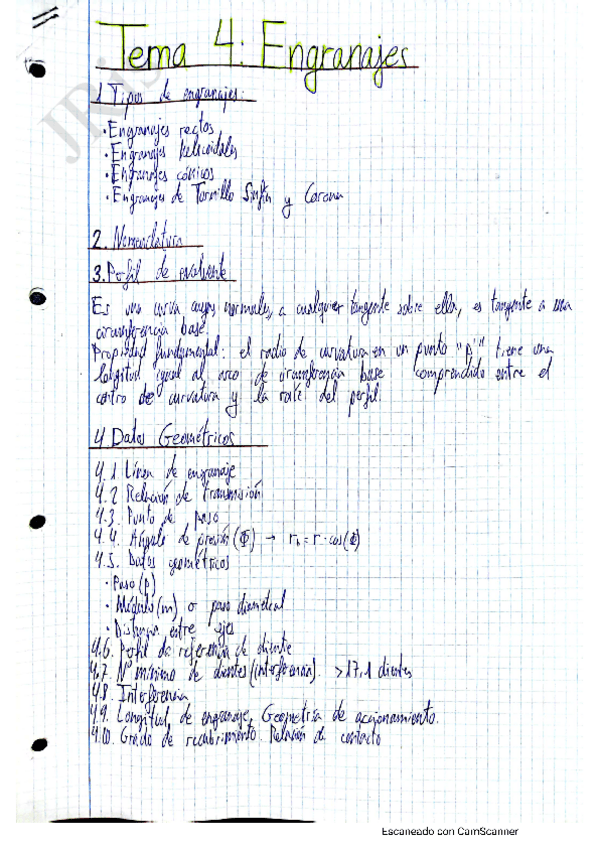 Tema 4: Engranajes
1 Tipos de engranajes:
· Engranajes rectos
· Engranajes helicoidales
· Engranajes cónicos
· Engranajes de Tornillo Sinfín y Corona
2. Nomenclatura
3. Perfil de evolvente
Es una curva cuyas normales, a cualquier tangente sobre ella, es tangente a una
circunferencia base.
Propiedad fundamental: el radio de curvatura en un punto "p" tiene una
longitud igual al arco de circunferencia base comprendido entre el
centro de curvatura y la raíz del perfil.
4 Datos Geométricos
4.1 Línea de engranaje
4.2 Relación de transmisión
4.3. Punto de paso
4.4. Ángulo de presión (Φ) → rb = r · cos(Φ)
4.5. Datos geométricos
· Paso (p)
· Módulo (m) o paso diametral
· Distancia entre ejes
4.6. Perfil de referencia de diente
4.7. Nº mínimo de dientes (interferencia). >17,1 dientes
4.8. Interferencia
4.9. Longitud de engranaje, Geometría de accionamiento.
4.10. Grado de recubrimiento. Relación de contacto
Escaneado con CamScanner